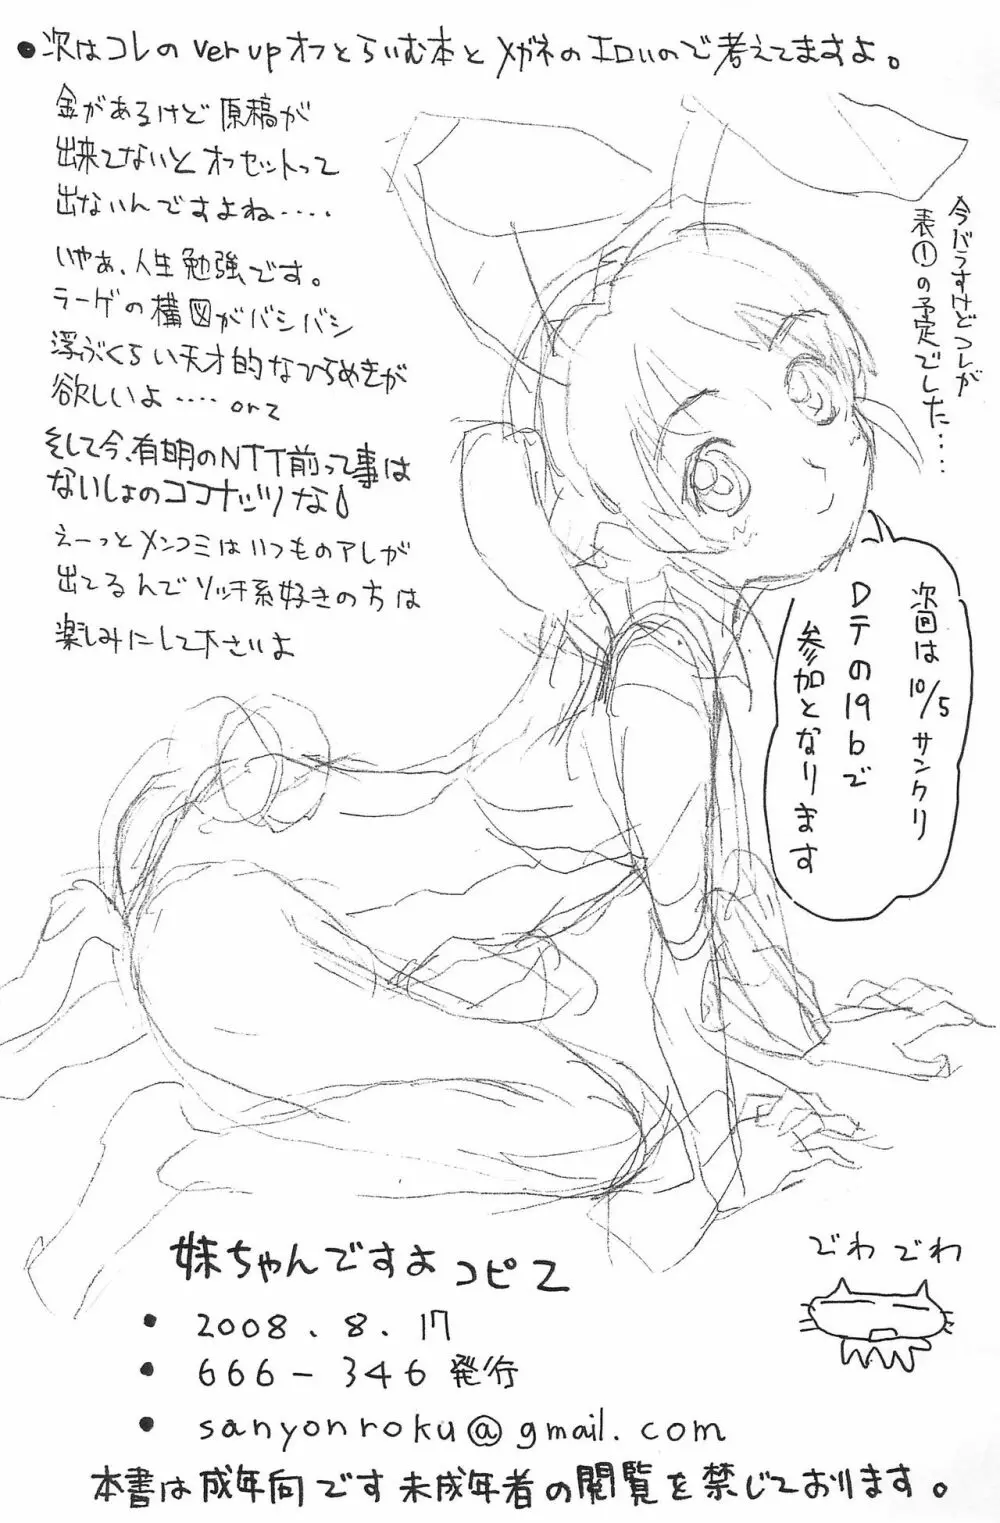 ●次はコレのver upオフとらいむ本とメガネのエロいので考えてますよ。
金があるけど原稿が
出来てないとオフセットって
出ないんですよね‥‥
いやぁ、人生勉強です。
ラーゲの構図がバシバシ
浮ぶくらい天才的なひらめきが
欲しいよ‥‥orz
そして今、有明のNTT前って事は
ないしょのココナッツな
えーっとメンコミはいつものアレが
出てるんでソッチ系好きの方は
楽しみにして下さいよ
今バラすけどコレが
表①の予定でした‥‥
次回は10/5サンクリ
Dテの19bで
参加となります
妹ちゃんですよコピ2
でわでわ
• 2008.8.17
• 666-346発行
• sanyonroku@gmail.com
本書は成年向です未成年者の閲覧を禁じております。